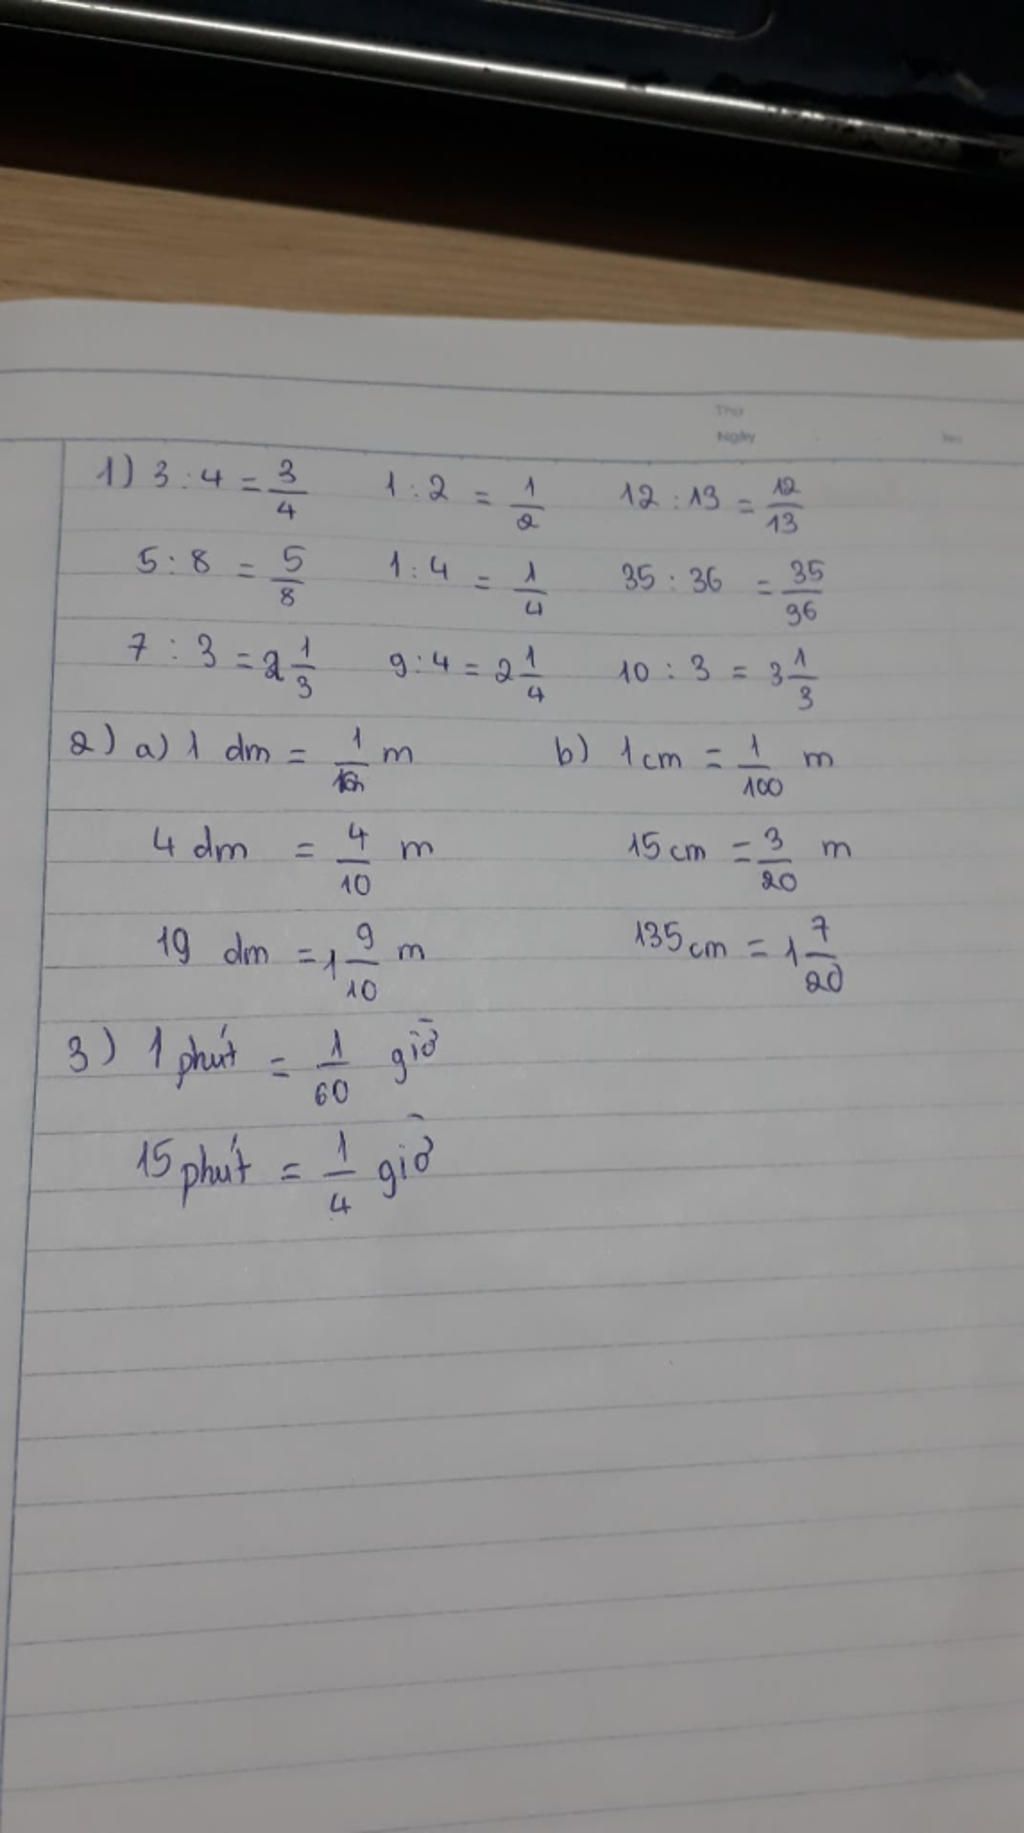 Thứ
Ngày No
1) 3 : 4 = 3/4 1 : 2 = 1/2 12 : 13 = 12/13
5 : 8 = 5/8 1 : 4 = 1/4 35 : 36 = 35/36
7 : 3 = 2 1/3 9 : 4 = 2 1/4 10 : 3 = 3 1/3
2) a) 1 dm = 1/10 m b) 1 cm = 1/100 m
4 dm = 4/10 m 15 cm = 3/20 m
19 dm = 1 9/10 m 135 cm = 1 7/20
3) 1 phút = 1/60 giờ
15 phút = 1/4 giờ